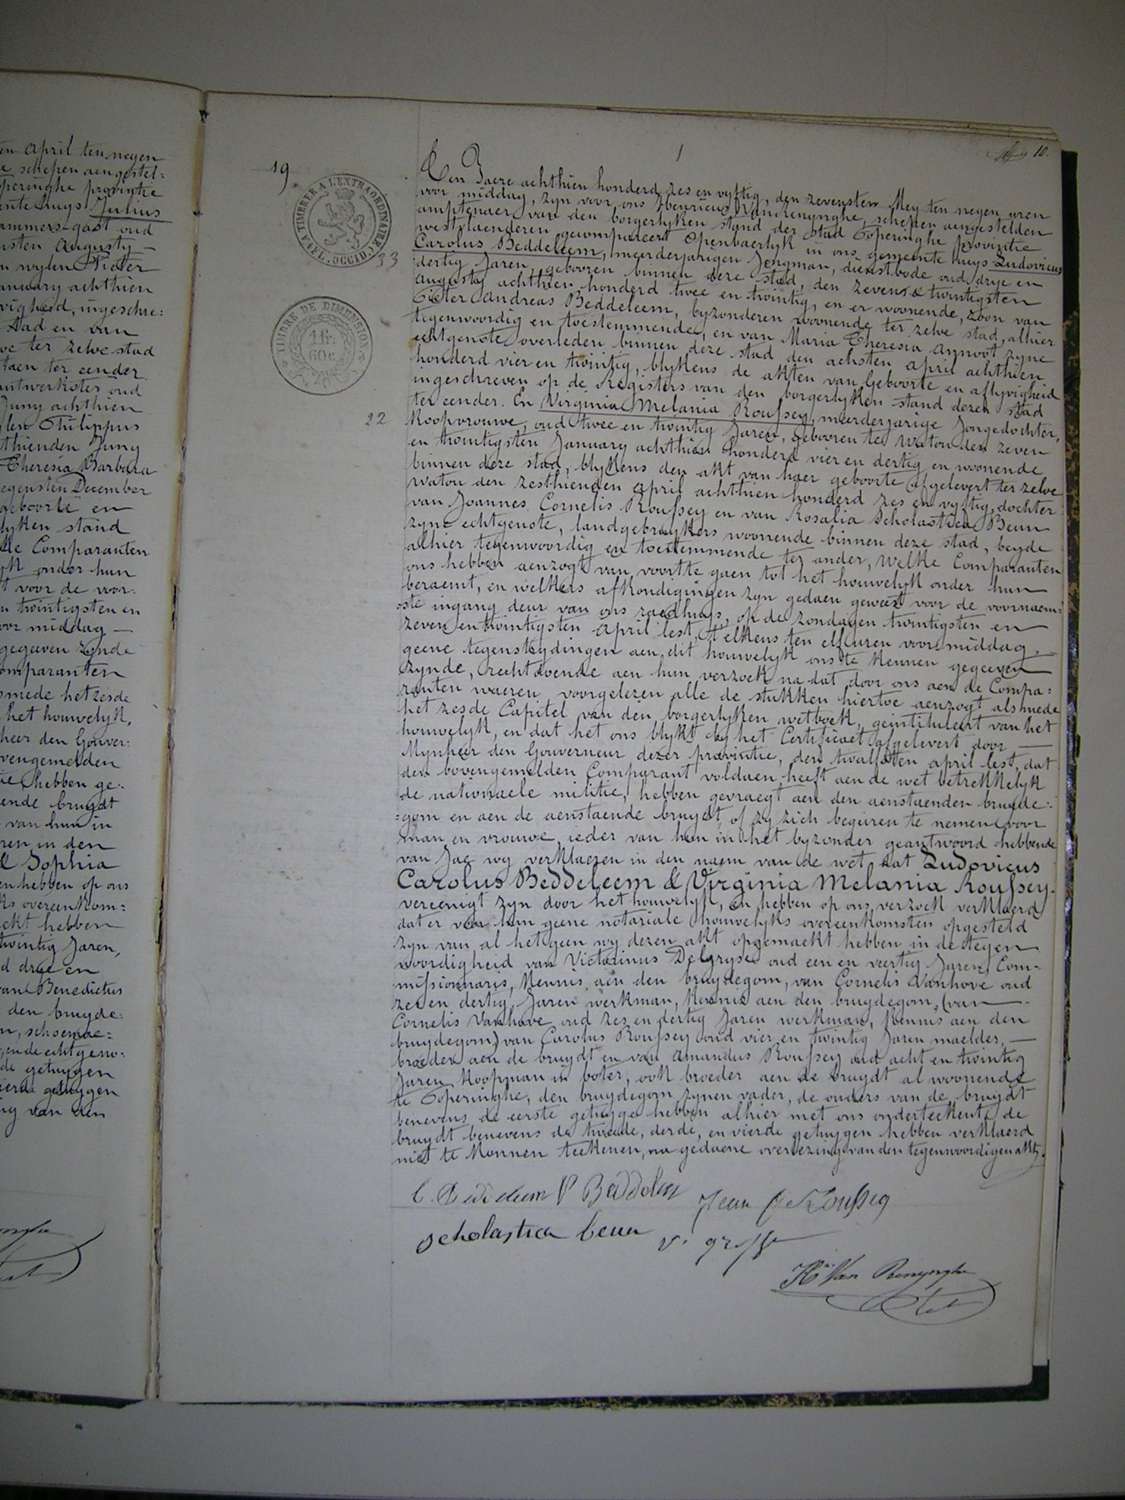 ën april ten negen
e schepen aengestel-
peringhe provintie
ente huys Julius
ammers-gast oud
sten Augusty —
n wylen Pieter
anuary achthien
vigheid, ingeschre-
Stad en van
ve ter zelve stad
taen ter eender
antwerkster oud
Juny achthien
len Philippus
thienden Juny
Theresia Barbara
egensten December
geboorte en
lyken stand
lke Comparanten
yk onder hun
t voor de voor-
n twintigsten en
oor middag —
gegeven zynde
omparanten
smede het zesde
het houwelyk,
heer den Gouver-
vengemelden
tie, hebben ge-
ende bruydt
van hun in
ren in den
& Sophia
en hebben op ons
ks overeenkom=
ekt hebben
twintig Jaren,
d drye en
van Benedictus
den bruyde-
n, schoenma-
ende echtgeno-
de getuygen
ierde getuygen
ng van den
10.
19.
TIMBRE A L'EXTRAORDINAIRE
FL. OCCID.
33
TIMBRE DE DIMENSION
1 fr.
60 c.
22
Den Jaere achthien honderd zes en vyftig, den zevensten Mey ten negen uren
voor middag, zyn voor ons Henricus Vanrenynghe, schepen aengestelden
amptenaer van den borgerlyken stand der Stad Poperinghe provintie
westvlaenderen gecompareert openbaerlyk in ons gemeente huys Ludovicus
Carolus Beddeleem, meerderjarigen Jongman, dienstbode oud drye en
dertig Jaren, gebooren binnen deze stad, den zeven & twintigsten
Augusty achthien honderd twee en twintig, en er woonende, zoon van
Pieter Andreas Beddeleem, byzonderen woonende ter zelve stad, alhier
tegenwoordig en toestemmende, en van Maria Theresia Annoot zyne
echtgenote overleden binnen deze stad den achsten april achthien
honderd vier en twintig, blykens de akten van geboorte en aflyvigheid
ingeschreven op de Registers van den borgerlyken stand dezer stad
ter eender. En Virginia Melania Roussey, meerderjarige Jongedochter,
Koopvrouwe, oud twee en twintig Jaren, gebooren te Watou den zeven
en twintigsten January achthien honderd vier en dertig en woonende
binnen deze stad, blykens den akt van haer geboorte afgelevert ter zelve
Watou den zesthienden april achthien honderd zes en vyftig, dochter
van Joannes Cornelis Roussey en van Rosalia Scholastica Beun
zyne echtgenote, landgebruykers woonende binnen deze stad, beyde
alhier tegenwoordig en toestemmende ter ander, Welke Comparanten
ons hebben aenzogt van voortte gaen tot het houwelyk onder hun
beraemt, en welkers afkondigingen zyn gedaen geweest voor de voornaem-
ste ingang deur van ons raedhuys, op de zondagen twintigsten en
zeven en twintigsten april lest, telkens ten elf uren voor middag. —
geene tegenstrydingen aen dit houwelyk ons te kennen gegeeven
zynde, rechtdoende aen hun verzoek na dat door ons aen de Compa-
ranten waeren, voorgelezen alle de stukken hiertoe aenzogt alsmede
het zesde Capitel van den borgerlyken wetboek, geintituleert van het
houwelyk, en dat het ons blykt by het Certificaet afgelevert door —
Mynheer den Gouverneur dezer provintie, den twalfsten april lest, dat
den bovengemelden Comparant voldaen heeft aen de wet betrekkelyk
de nationaele militie, hebben gevraegt aen den aenstaenden bruyde-
gom en aen de aenstaende bruydt of zy zich begeren te nemen voor
man en vrouwe, ieder van hun in het byzonder geantwoord hebbende
van Jae wy verklaeren in den naem van de wet, dat Ludovicus
Carolus Beddeleem & Virginia Melania Roussey.
vereenigt zyn door het houwelyk, en hebben op ons verzoek verklaerd
dat er van hun geene notariale houwelyks overeenkomsten opgesteld
zyn van al het geen wy dezen akt opgemaekt hebben in de tegen
woordigheid van Victorinus Degryse oud een en veertig Jaren, Com-
missionnaris, Kennis aen den bruydegom, van Cornelis Vanhove oud
zes en dertig Jaren werkman, Kennis aen den bruydegom, (van —
Cornelis Vanhove oud zes en dertig Jaren werkman, Kennis aen den
bruydegom) van Carolus Roussey oud vier en twintig Jaren maelder, —
broeder aen de bruydt en van Amandus Roussey oud acht en twintig
Jaren Koopman in boter, ook broeder aen de bruydt al woonende
te Poperinghe, den bruydegom zynen vader, de ouders van de bruydt
benevens de eerste getuyge hebben alhier met ons onderteekent, de
bruydt benevens de tweede, derde, en vierde getuygen hebben verklaerd
niet te konnen teekenen, na gedaene overlezing van den tegenwoordigen akt.
C. Beddeleem P Beddeleem Jean C Roussey
scholastica beun
Hri Van Renynghe